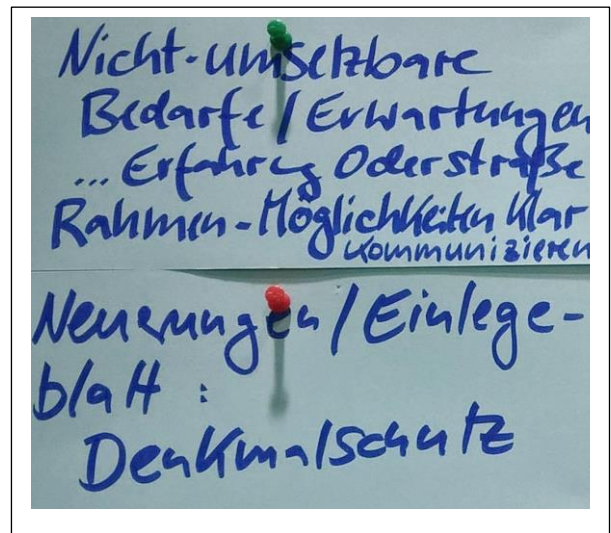 Nicht-umsetzbare
Bedarfe / Erwartungen
... Erfahrg Oderstraße
Rahmen-Möglichkeiten klar
kommunizieren
Neuerungen / Einlege-
blatt :
Denkmalschutz